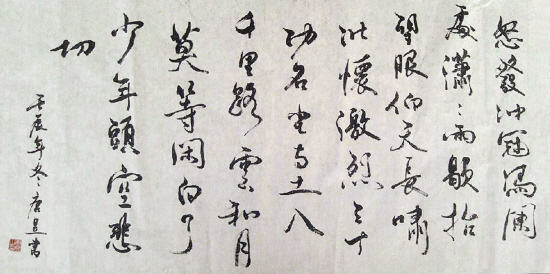 怒發冲冠馮闌
處瀟々雨歇抬
望眼仰天長嘯
壯懷激烈三十
功名尘与土八
千里路雲和月
莫等闲白了
少年頭空悲
切
壬辰年冬書